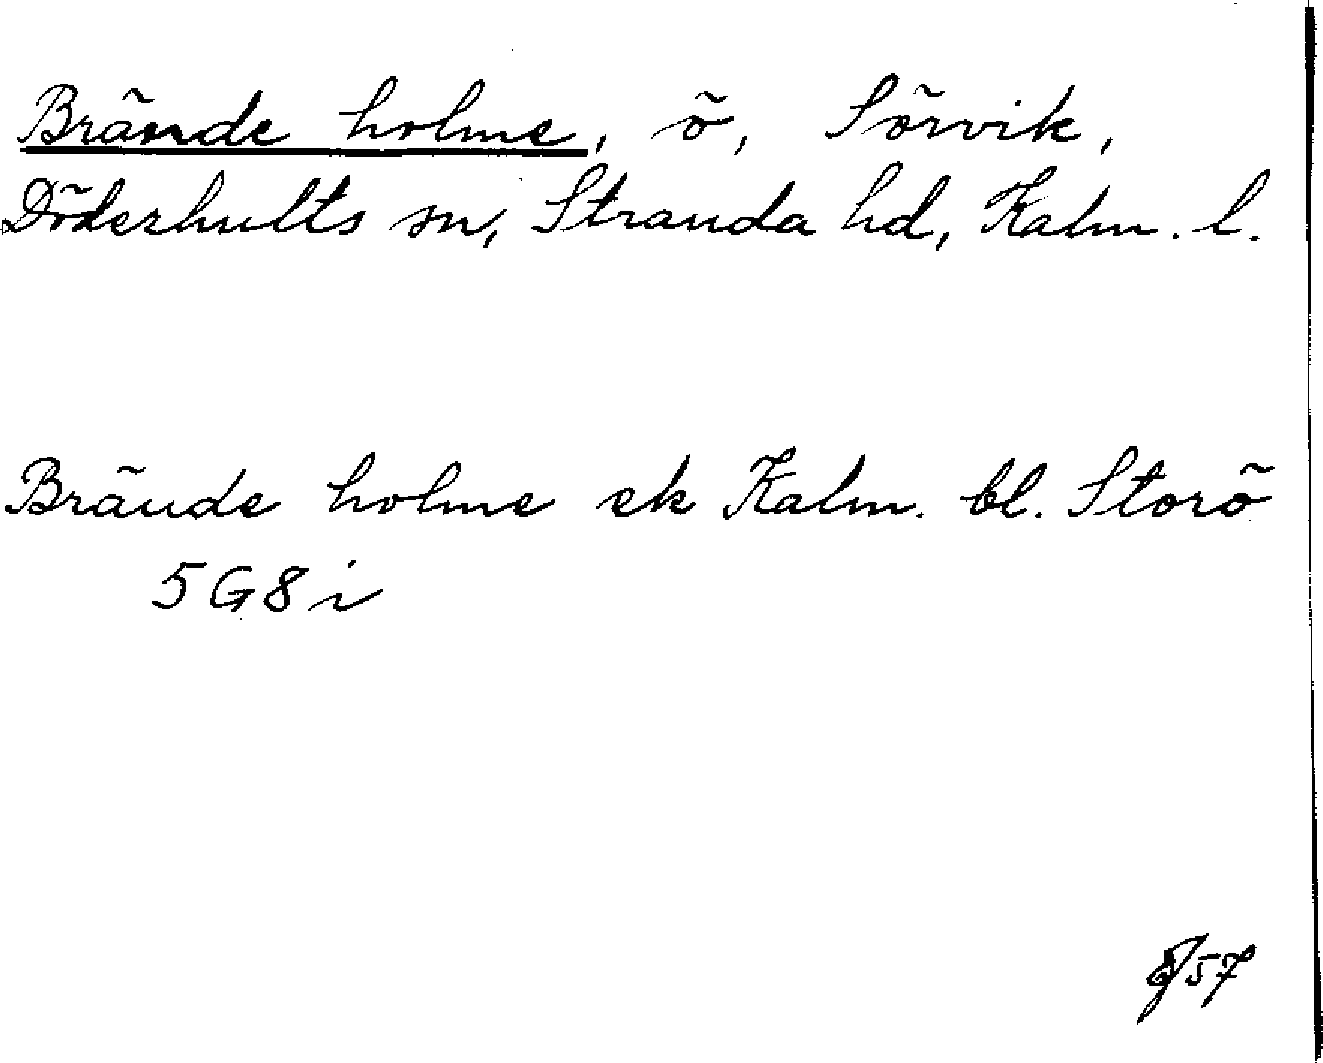 Brände holme, ö, Sörvik,
Döderhults sn, Stranda hd, Kalm. l.
Brände holme ek Kalm. bl. Storö
5G8i
/57